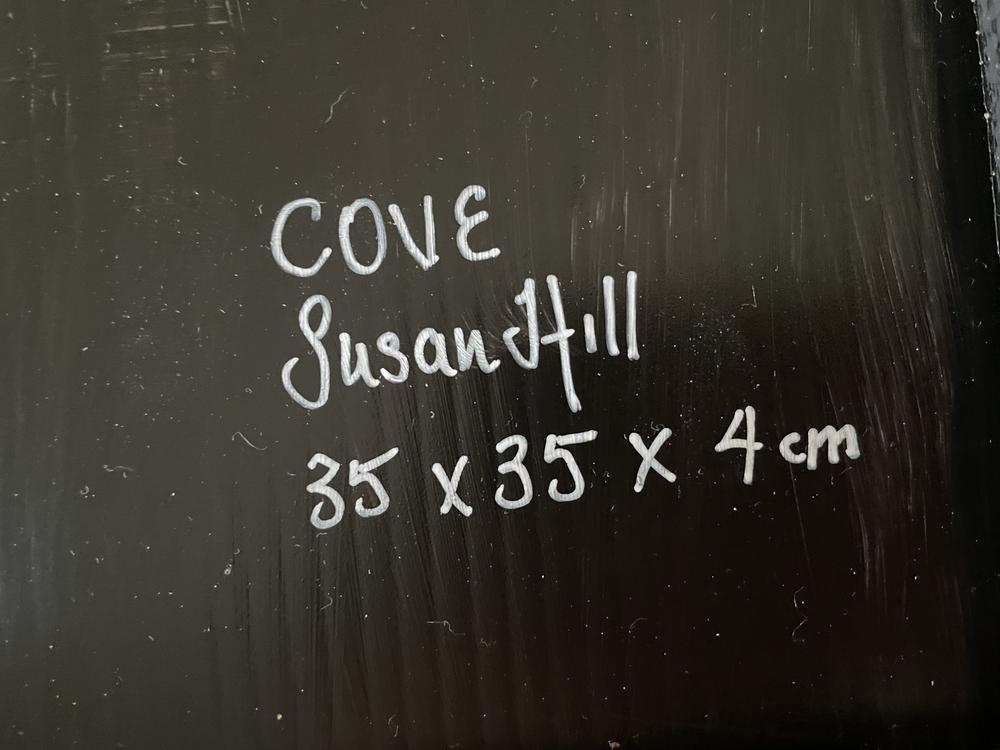 COVE
Susan Hill
35 x 35 x 4 cm